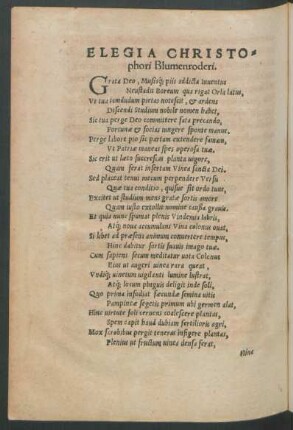 ELEGIA CHRISTO-
phori Blumenroderi.
Grata Deo, Musisq́; piis addicta iuuentus
Neustadii Boreum qua rigat Orla latus,
Vt tua laudandum pietas notescit, & ardens
Discendi Studium nobile nomen habet,
Sic tua perge Deo committere fata precando,
Fortunæ & socias iungere sponte manus.
Perge labore pio sic partam extendere famam,
Vt Patriæ maneat spes operosa tuæ.
Sic erit ut læto succrescat planta uigore,
Quam serat insertam Vinea sancta Dei.
Sed placeat tenui mecum perpendere Versu
Quæ tua conditio, quisue sit ordo tuus,
Excitet ut studium mens gratæ sortis amore
Quam iusto extollit nomine causa grauis.
Et quia nunc spumat plenis Vindemia labris,
Atq́; nouæ accumulant Vina colonus ouat,
Si libet ad præsens animum conuertere tempus,
Hinc dabitur sortis sucus imago tuæ.
Cum sapiens secum meditatur uota Colonus
Riui ut augeri uinea rara queat,
Vndiq́; uinetum uigilanti lumine lustrat,
Atq́; locum pinguis deligit inde soli,
Quo prima infodiat fœcundæ semina uitis
Pampineæ segetis primum ubi germen alat,
Hinc uirtute soli ceruens coalescere plantas,
Spem capit haud dubiam fertilioris agri,
Mox scrobibus pergit teneras infigere plantas,
Plenius ut fructum uinea densa ferat,